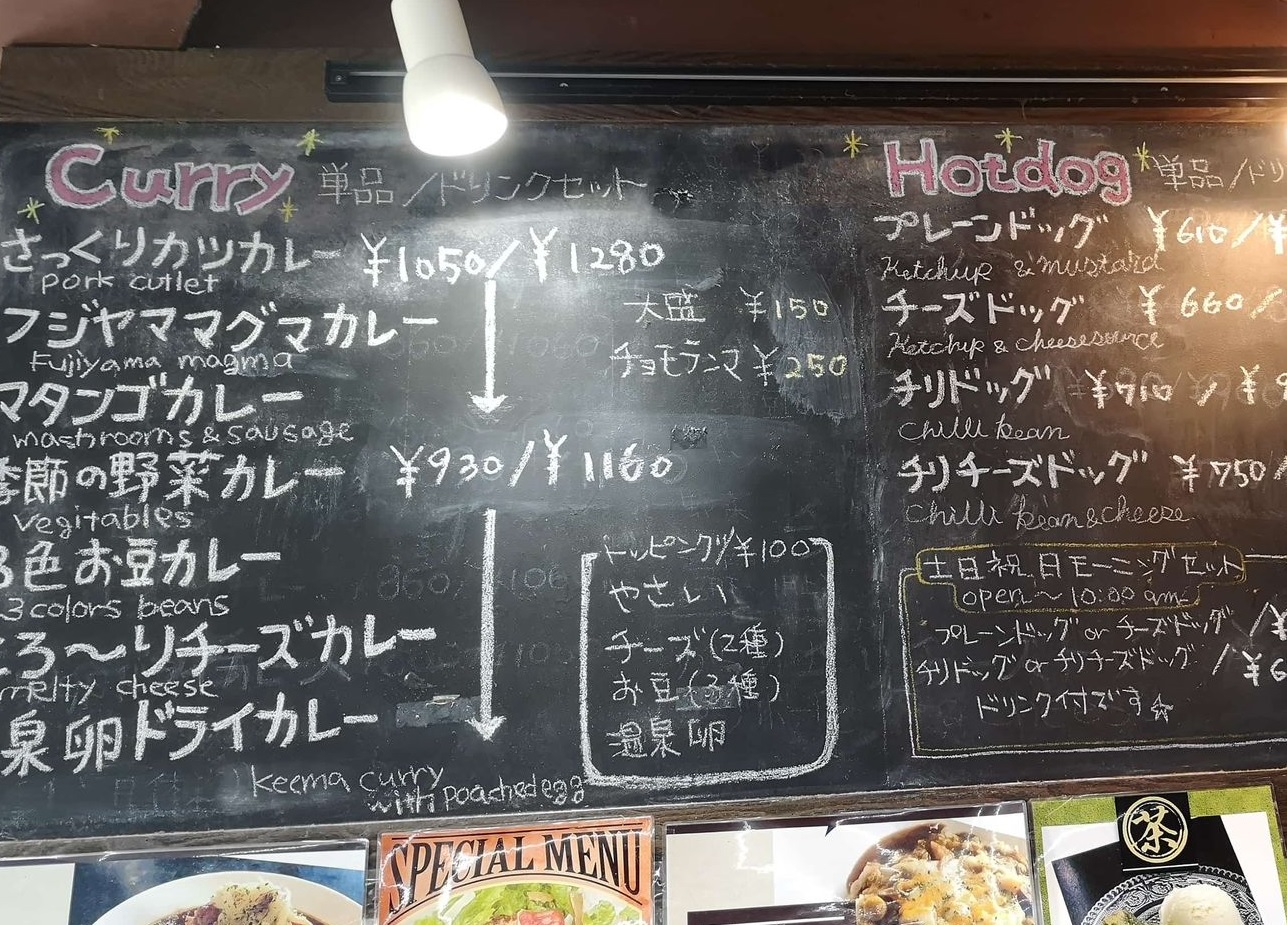 Curry 単品/ドリンクセット
さっくりカツカレー ¥1050/¥1280
pork cutlet
フジヤママグマカレー
Fujiyama magma
マタンゴカレー
mashrooms & sausage
季節の野菜カレー ¥930/¥1160
vegitables
3色お豆カレー
3 colors beans
とろ～りチーズカレー
melty cheese
温泉卵ドライカレー
keema curry
with poached egg
大盛 ¥150
チョモランマ ¥250
トッピング¥100
やさしい
チーズ(2種)
お豆(3種)
温泉卵
Hotdog 単品/ドリ
プレーンドッグ ¥610/¥
Ketchup & mustard
チーズドッグ ¥660/
Ketchup & cheesesource
チリドッグ ¥710/¥
Chilli bean
チリチーズドッグ ¥750/
Chilli bean & cheese
土日祝日モーニングセット
open～10:00 am
プレーンドッグ or チーズドッグ /¥
チリドッグ or チリチーズドッグ /¥6
ドリンク付です☆
SPECIAL MENU
茶